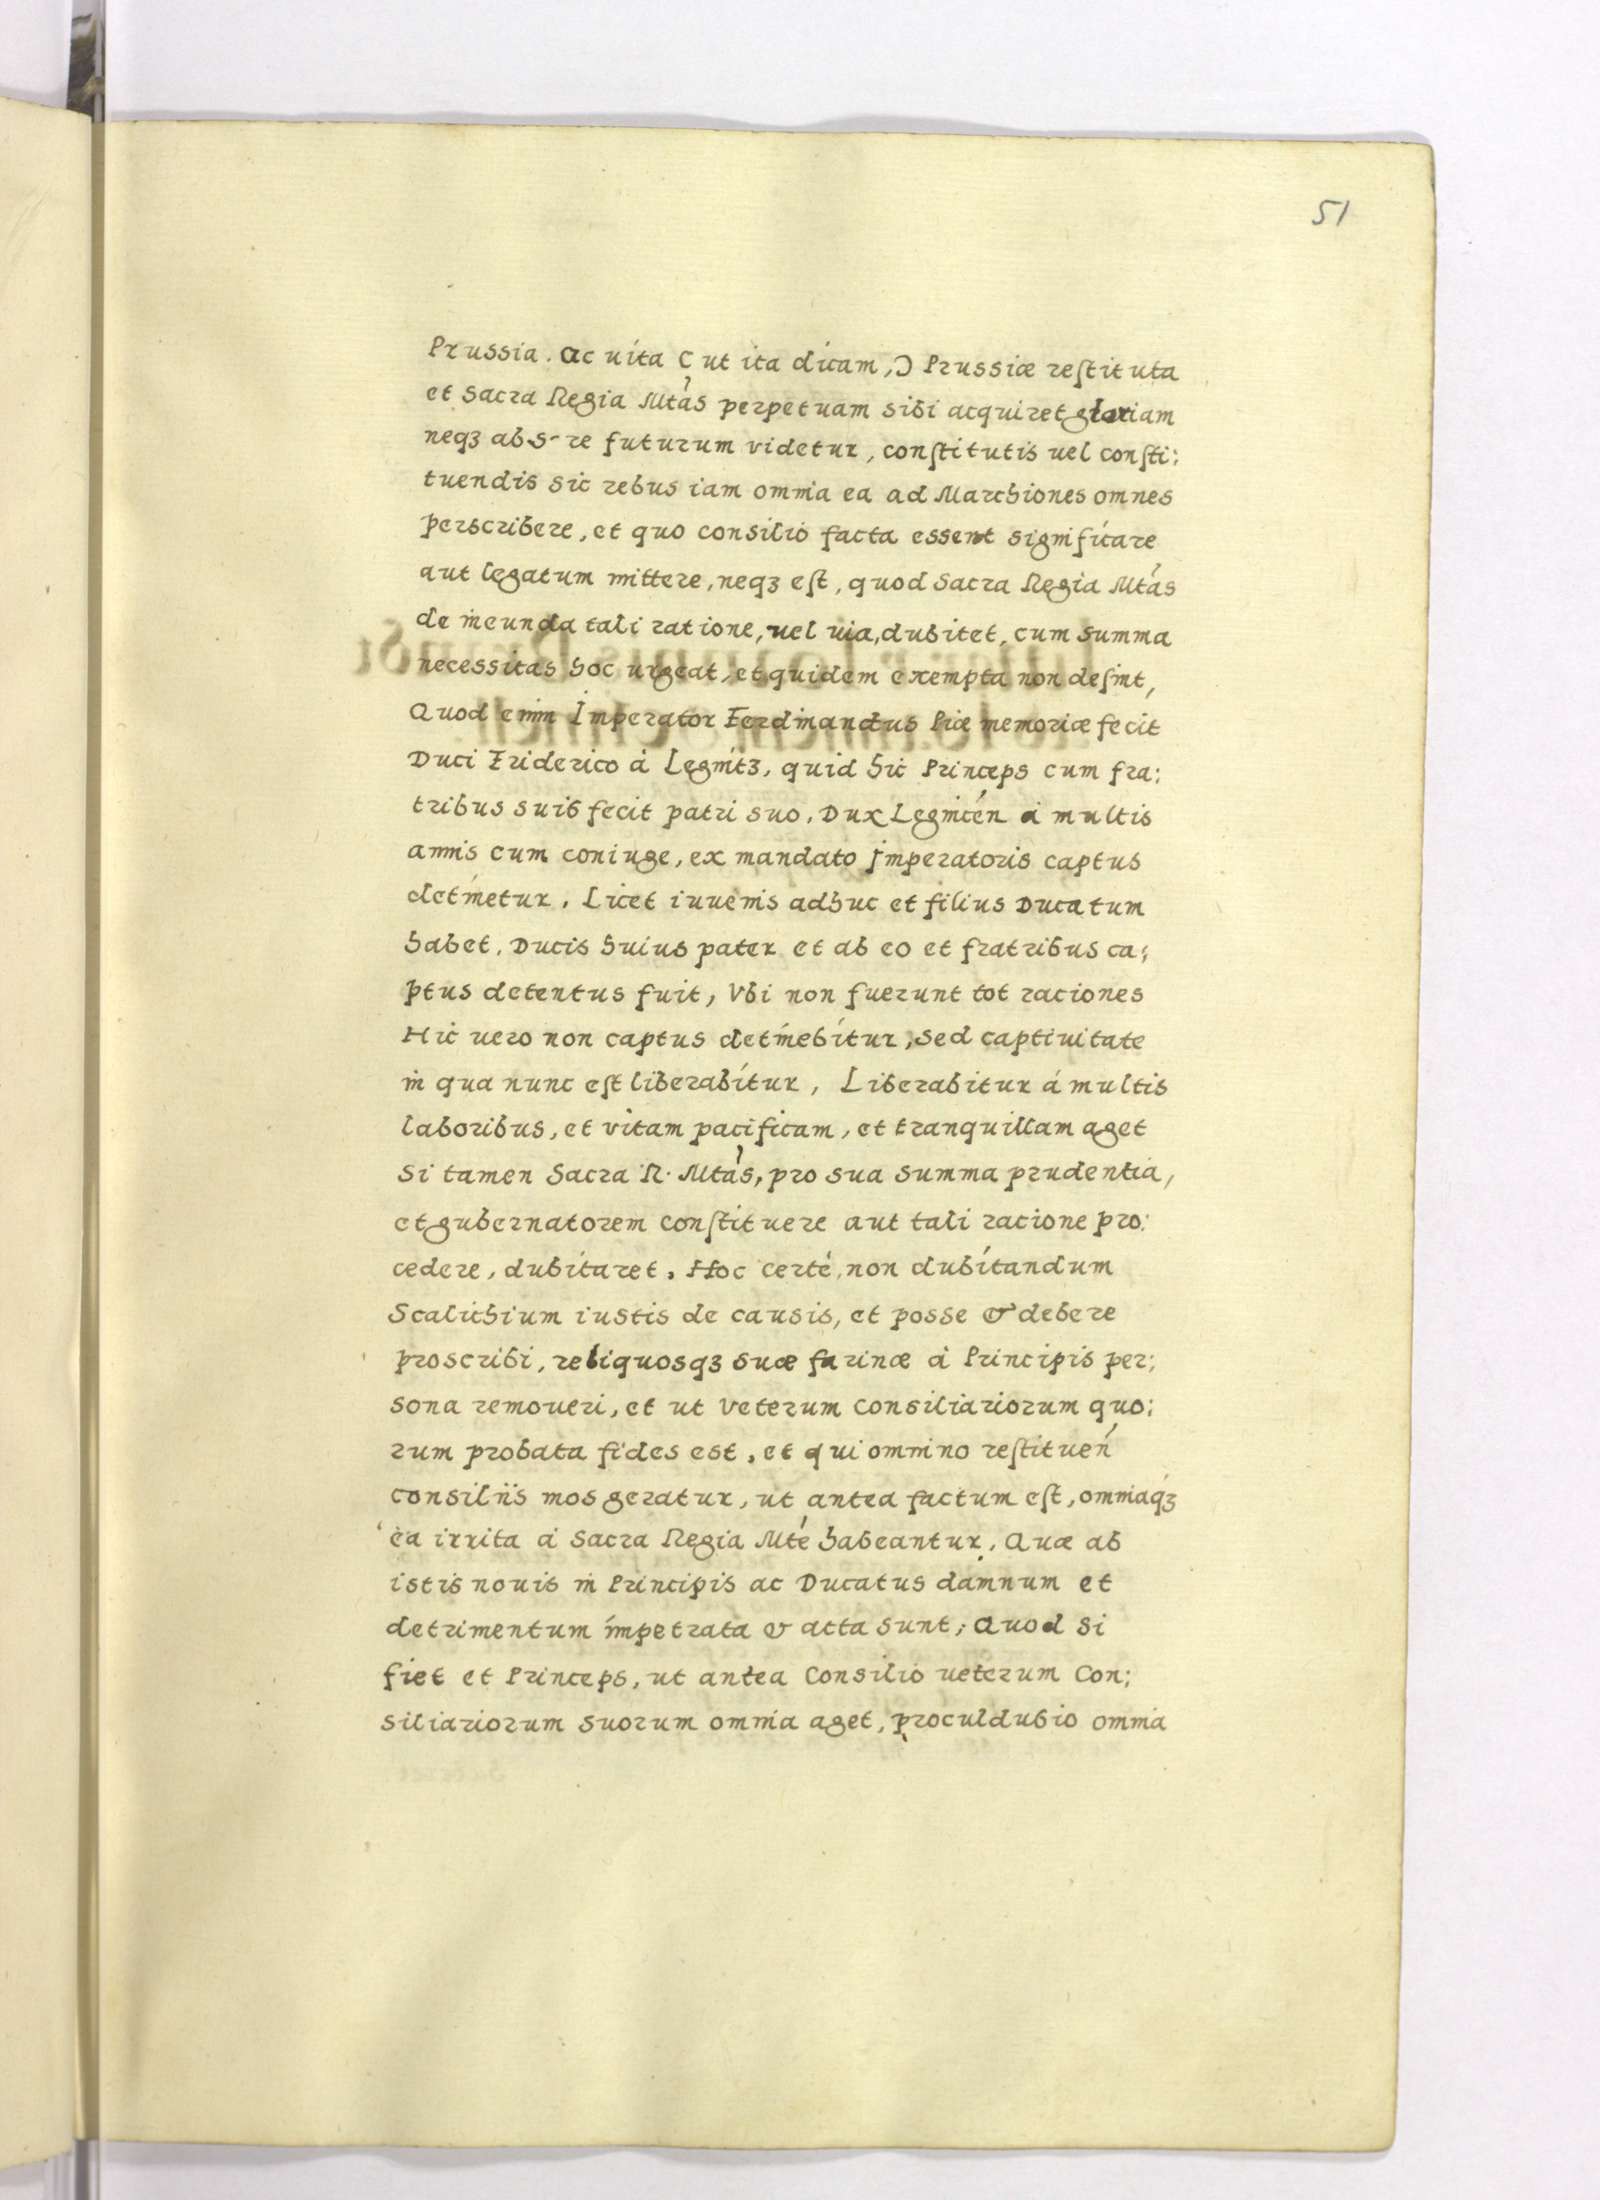 51
Prussia. ac uita (ut ita dicam,) Prussiæ restituta
et Sacra Regia Mtas perpetuam sibi acquiret gloriam
neqꝫ abs re futurum videtur, constitutis uel consti:
tuendis sic rebus iam omnia ea ad Marchiones omnes
perscribere, et quo consilio facta essent significare
aut legatum mittere, neqꝫ est, quod Sacra Regia Mtas
de ineunda tali ratione, uel uia, dubitet, cum summa
necessitas hoc urgeat, et quidem exempta non desint,
Quod enim Imperator Ferdinandus Piæ memoriæ fecit
Duci Friderico à Legnitz, quid hic Princeps cum fra:
tribus suis fecit patri suo, Dux Legnicén à multis
annis cum coniuge, ex mandato Imperatoris captus
detinetur. Licet iuuenis adhuc et filius Ducatum
habet. Ducis huius pater et ab eo et fratribus ca:
ptus detentus fuit, Vbi non fuerunt tot raciones
Hic uero non captus detinebitur, sed captiuitate
in qua nunc est liberabitur, Liberabitur á multis
laboribus, et vitam pacificam, et tranquillam aget
Si tamen Sacra R. Mtas, pro sua summa prudentia,
et gubernatorem constituere aut tali racione pro:
cedere, dubitaret. Hoc certè, non dubitandum
Scalichium iustis de causis, et posse & debere
proscribi, reliquosqꝫ suæ farinæ à Principis per:
sona remoueri, et ut veterum consiliariorum quo:
rum probata fides est, et qui omnino restituén
consilijs mos geratur, ut antea factum est, omniaqꝫ
ea irrita à Sacra Regia Mte habeantur. Quæ ab
istis nouis in Principis ac Ducatus damnum et
detrimentum impetrata & acta sunt; Quod si
fiet et Princeps, ut antea Consilio ueterum Con:
siliariorum suorum omnia aget, proculdubio omnia